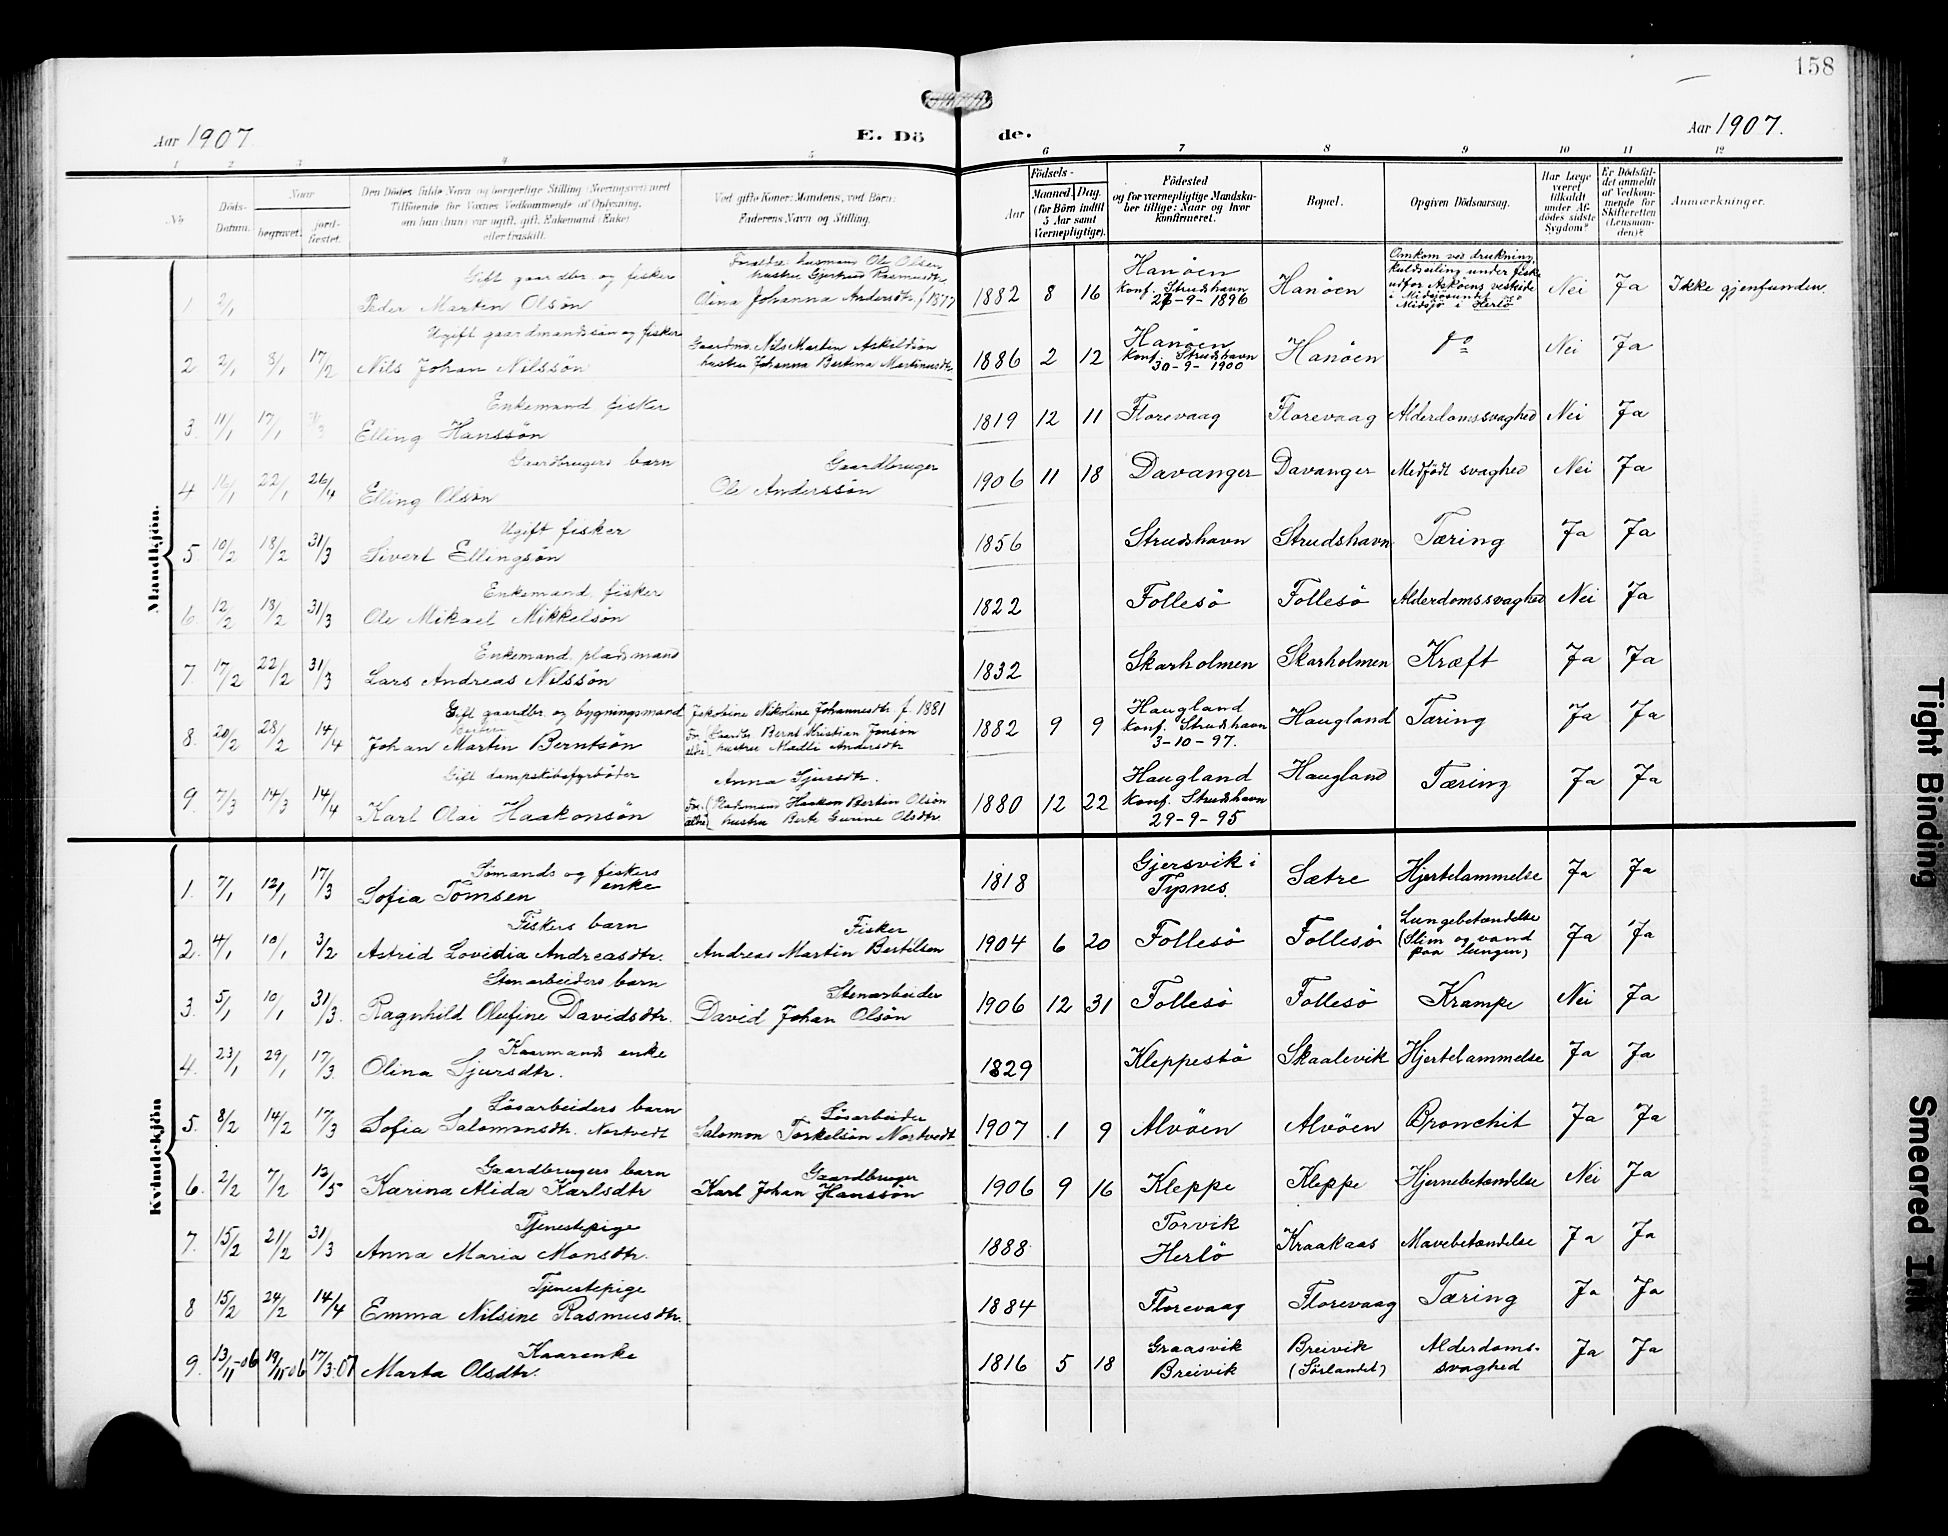 158
Aar 1907.
E. Dö
de.
Aar 1907.
1 2 3 4 5 6 7 8 9 10 11 12
No
Döds-
Datum.
Naar
begravet.
jord-
fæstet.
Den Dödes fulde Navn og borgerlige Stilling (Næringsvei) med
Tilföiende for Voxnes Vedkommende af Oplysning,
om han (hun) var ugift, gift, Enkemand (Enke)
eller fraskilt.
Ved gifte Koner: Mandens, ved Börn:
Faderens Navn og Stilling.
Födsels-
Aar
Maaned. Dag.
(for Börn indtil
5 Aar samt
Værnepligtige).
Födested
og for værnepligtige Mandska-
ber tillige: Naar og hvor
konfirmeret.
Bopæl.
Opgiven Dödsaarsag.
Har Læge
været
tilkaldt
under Af-
dödes sidste
Sygdom?
Er Dödsfal-
det anmeldt
af Vedkom-
mende for
Skifteretten
(Lensman-
den)?
Anmærkninger.
Mandkjön.
Gift gaardbr. og fisker
Forældre: husmand Ole Olsen
hustru Gjertrud Rasmusdtr.
1 2/1 Peder Martin Olsön Olina Johanna Andersdtr. f 1877 1882 8 16 Hanöen
Konf. Strudshavn
27-9-1896
Hanöen
Omkom ved drukning,
kuldseiling under fiske
udfor Asköens vestside
i
i Herlö
Nei Ja Ikke gjenfunden.
Ugift gaardmandssön og fisker
2 2/1 8/1 17/2 Nils Johan Nilssön
Gaardm. Nils Martin Askeldsön
hustru Johanna Bertina Martinusdtr.
1886 2 12 Hanöen
Konf. Strudshavn
30-9-1900
Hanöen do Nei Ja
Enkemand, fisker
3. 11/1 17/1 Elling Hanssön 1819 12 11 Florevaag Florevaag Alderdomssvaghed Nei Ja
Gaardbrugers barn Gaardbruger
4 16/1 22/1 26/4 Elling Olsön Ole Anderssön 1906 11 18 Davanger Davanger Medfödt svaghed Nei Ja
Ugift fisker
5. 10/2 18/2 31/3 Sivert Ellingsön 1856 Strudshavn Strudshavn Tæring Ja Ja
Enkemand, fisker
6. 12/2 18/2 31/3 Ole Mikael Mikkelsön 1822 Follesö Follesö Alderdomssvaghed Nei Ja
Enkemand, pladsmand
7. 17/2 22/2 31/3 Lars Andreas Nilssön 1832 Skarholmen Skarholmen Kræft Ja Ja
Gift gaardbr. og bygningsmand Jakobine Nikoline Johannesdtr. f. 1881
8. 20/2 28/2 14/4 Johan Martin Berntsön
For-
ældre
Gaardbr. Bernt Kristian Jonsön
hustru Madli Andersdtr.
1882 9 9 Haugland
Konf. Strudshavn
3-10-97.
Haugland Tæring Ja Ja
Gift dampskibsfyrböder Anna Sjursdtr.
9. 7/3 14/3 14/4 Karl Olai Haakonsön
For-
ældre
Pladsmand Haakon Bertin Olsön
hustru Berte Gurine Olsdtr.
1880 12 22 Haugland
Konf. Strudshavn
29-9-95
Haugland Tæring Ja Ja
Kvindekjön
Sömands og fiskers
enke
1. 7/1 12/1 17/3 Sofia Tomsen 1818 Gjersvik i
Tysnes.
Sætre Hjertelammelse Ja Ja
Fiskers barn Fisker
2. 4/1 10/1 3/2 Astrid Lovidia Andreasdtr. Andreas Martin Bertilsen 1904 6 20 Follesö Follesö
Lungebetændelse
(Slim og vand
paa lungen)
Ja Ja
Stenarbeiders barn Stenarbeider
3. 5/1 10/1 31/3. Ragnhild Olufine Davidsdtr. David Johan Olsön 1906 12 31 Follesö Follesö Krampe Nei Ja
Kaarmands enke
4. 23/1 29/1 17/3. Olina Sjursdtr. 1829 Kleppestö Skaalevik Hjertelammelse Ja Ja
Lösarbeiders barn Lösarbeider
5. 8/2 14/2 17/3 Sofia Salomonsdtr. Nortvedt Salomon Torkelsön Nortvedt 1907 1 9 Alvöen Alvöen Bronchit Ja Ja
Gaardbrugers barn Gaardbruger
6. 2/2 7/2 12/5 Karina Alida Karlsdtr Karl Johan Hanssön 1906 9 16 Kleppe Kleppe Hjernebetændelse Nei Ja
Tjenestepige
7. 15/2 21/2 31/3 Anna Maria Monsdtr. 1888 Torvik
Herlö
Kraakaas Mavebetændelse Ja Ja
Tjenestepige
8 15/2 24/2 14/4 Emma Nilsine Rasmusdtr. 1884 Florevaag Florevaag Tæring Ja Ja
Kaarenke
9. 13/11-06 19/11-06 17/3.07 Marta Olsdtr. 1816 5 18 Graasvik
Breivik
Breivik
(Sörlandet)
Alderdoms-
svaghed
Ja Ja
Tight Binding
Smeared Ink